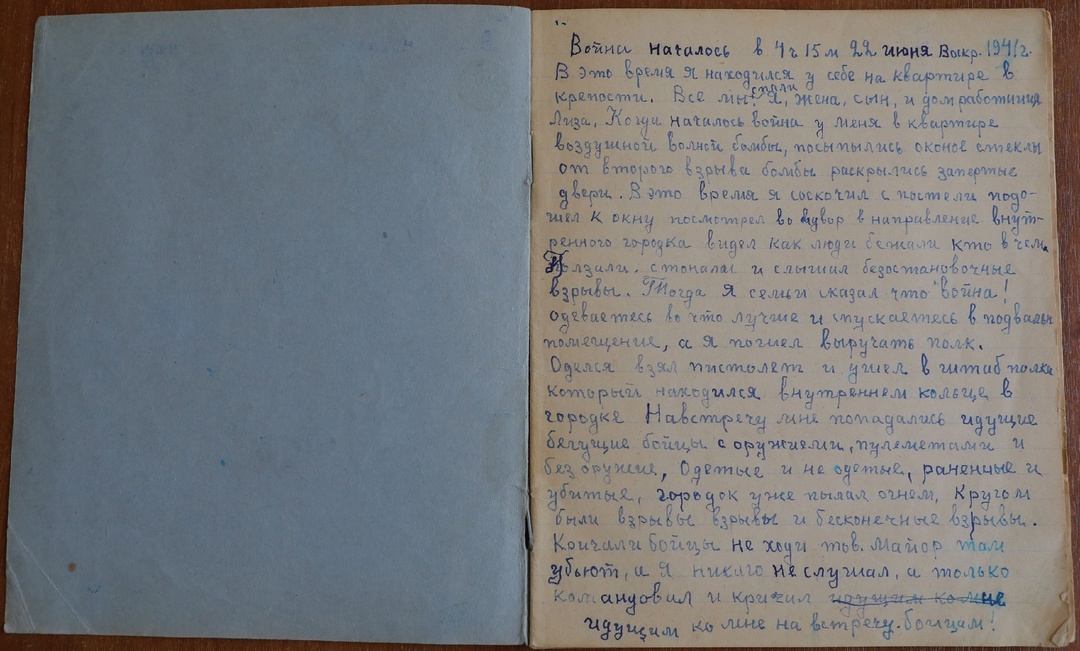 Война началось в 4ч 15м 22 июня Воскр. 1941г.
В это время я находился у себе на квартире в
крепости. Все мы: спали я, жена, сын, и домработница
Лиза. Когда началось война у меня в квартире
воздушной волной бомбы, посыпылись оконое стеклы
от второго взрыва бомбы раскрылись запертые
двери. В это время я соскочил с постели подо-
шел к окну посмотрел во двор в направление внут-
ренного городка видел как люди бежали кто в чем.
Ползали. стонали и слышал безостановочные
взрывы. Тогда я семьи сказал что война!
одеваетесь во что лучше и спускаетесь в подвальн
помещение, а я пошел выручать полк.
Оделся взял пистолет и ушел в штаб полка
который находился внутреннем кольце в
городке Навстречу мне попадались идущие
бегущие бойцы с оружием, пулеметами и
без оружие, Одетые и не одетые, раненные и
убитые, городок уже пылал огнем, Кругом
были взрывы взрывы и бесконечные взрывы.
Кричали бойцы не ходи тов. Майор там
убьют, а я никого не слушал, а только
командовал и кричал идущим ко мне
идущим ко мне на встречу. бойцам!